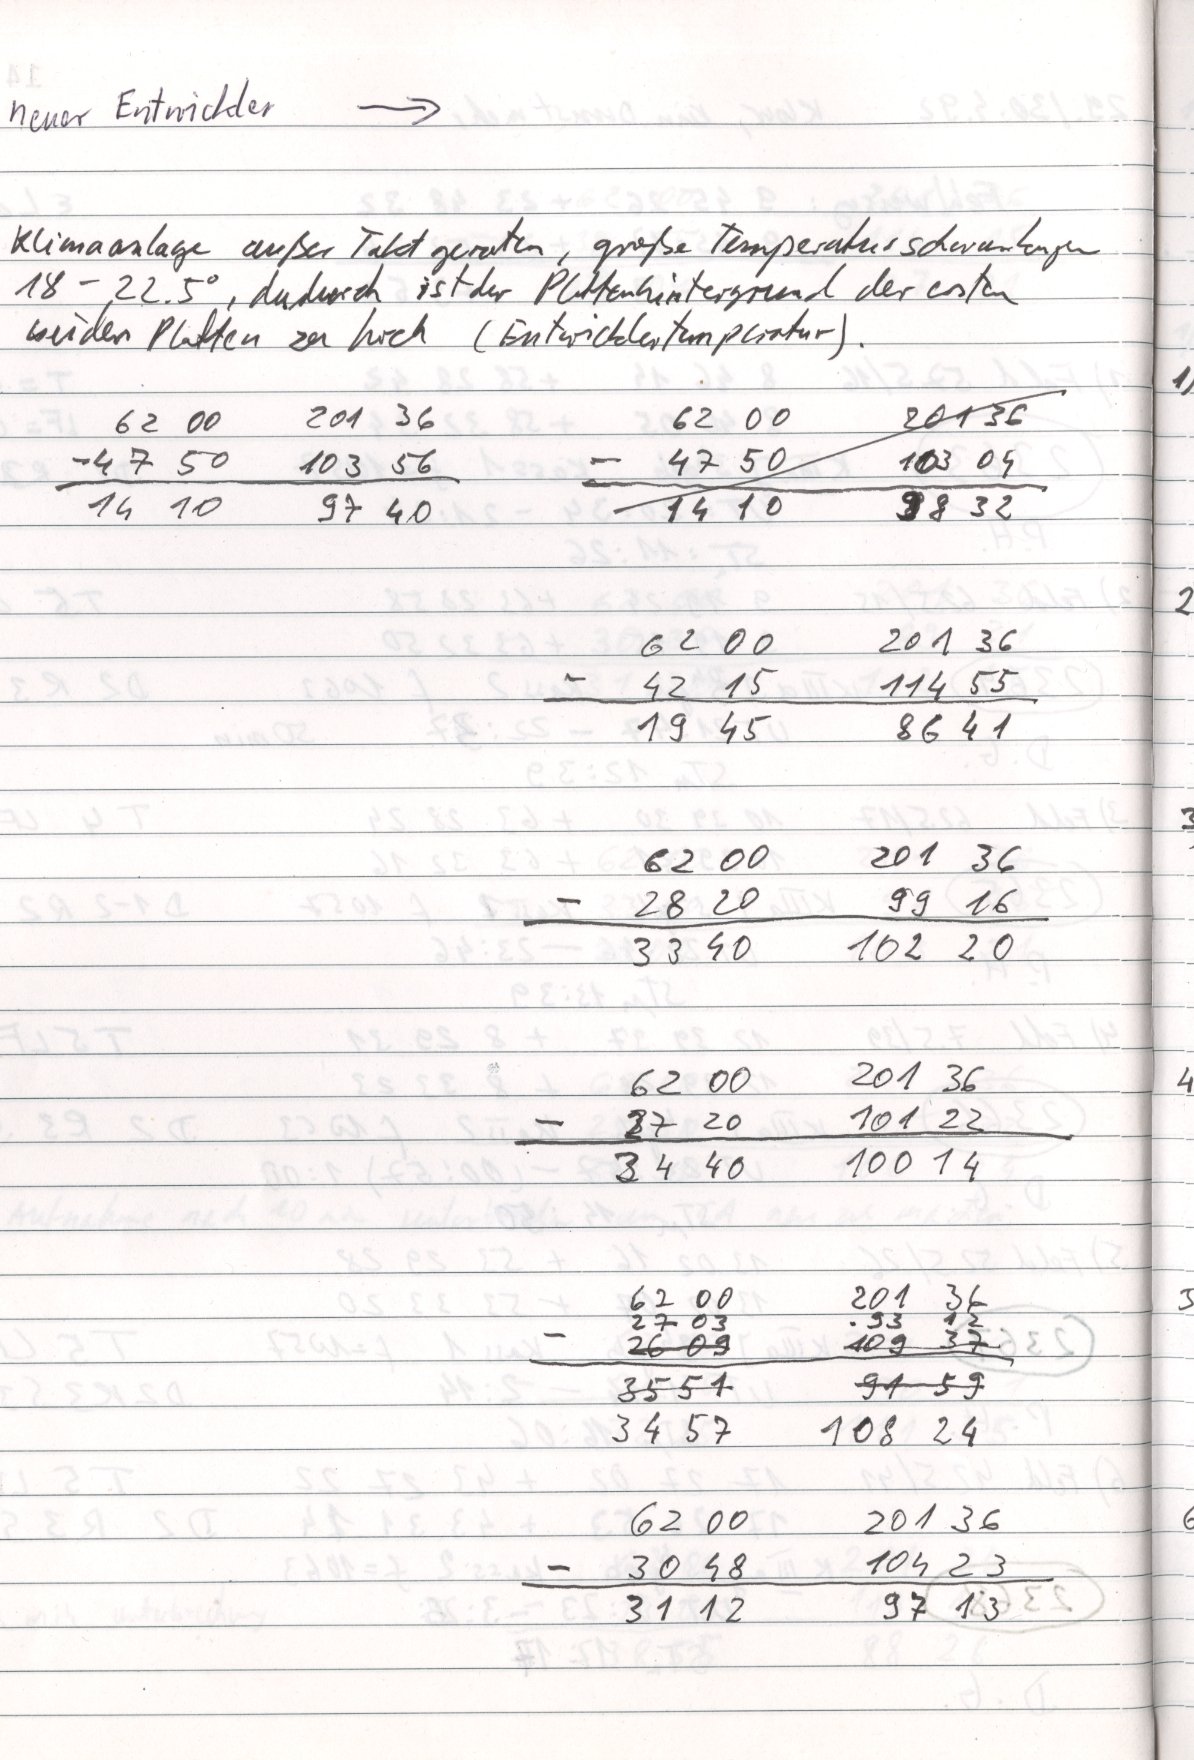 neuer Entwickler →
Klimaanlage außer Takt geraten, große Temperaturschwankungen
18 - 22.5°, dadurch ist der Plattenhintergrund der ersten
beiden Platten zu hoch (Entwicklertemperatur).
62 00 201 36 62 00 201 36
-47 50 103 56 - 47 50 103 04
14 10 97 40 14 10 98 32
62 00 201 36
- 42 15 114 55
19 45 86 41
62 00 201 36
- 28 20 99 16
33 40 102 20
62 00 201 36
- 27 20 101 22
34 40 100 14
62 00 201 36
27 03 93 12
- 26 09 109 37
35 51 91 59
34 57 108 24
62 00 201 36
- 30 48 104 23
31 12 97 13